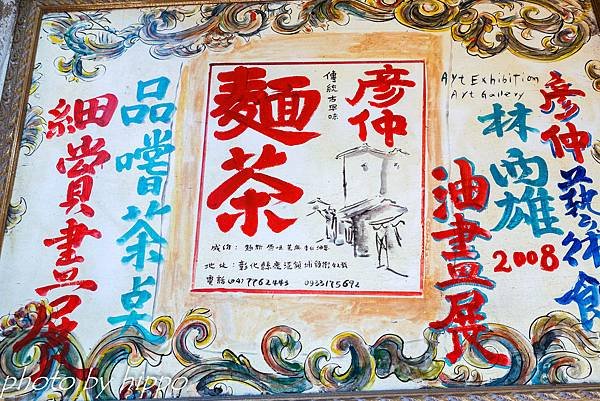 Art Exhibition
Art Gallery
彥仲藝術
林
雄
2008
油畫展
彥仲
傳統古早味
麵茶
成份：麵粉 原味
地址：彰化縣鹿港鎮埔頭街42號
電話(04)7762445 0933175692
品嚐茶
細賞畫展
photo by hippo